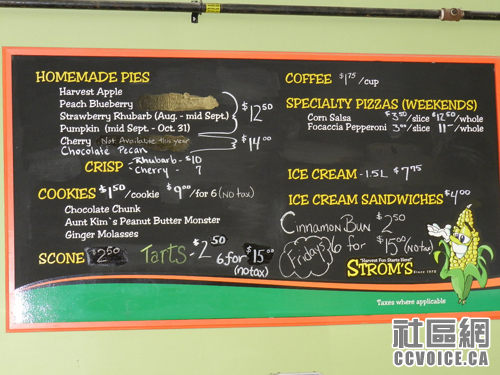 HOMEMADE PIES
Harvest Apple
Peach Blueberry
Strawberry Rhubarb (Aug. - mid Sept.)
Pumpkin (mid Sept - Oct. 31)
$12.50
Cherry Not Available this year
Chocolate Pecan
$14.00
CRISP - Rhubarb - $10
- Cherry - 7
COOKIES $1.50/cookie $9.00/for 6 (NO TAX)
Chocolate Chunk
Aunt Kim's Peanut Butter Monster
Ginger Molasses
SCONE $2.50
Tarts - $2.50
6 for $15.00
(no tax)
COFFEE $1.75/cup
SPECIALTY PIZZAS (WEEKENDS)
Corn Salsa $3.50/slice $12.50/whole
Focaccia Pepperoni 3.00/slice 11-/whole
ICE CREAM - 1.5L $7.75
ICE CREAM SANDWICHES $4.00
Cinnamon Bun $2.50
Fridays 6 for $15.00 (no tax)
"Harvest Fun Starts Here!"
STROM'S Since 1975
Taxes where applicable
社區網
CCVOICE.CA